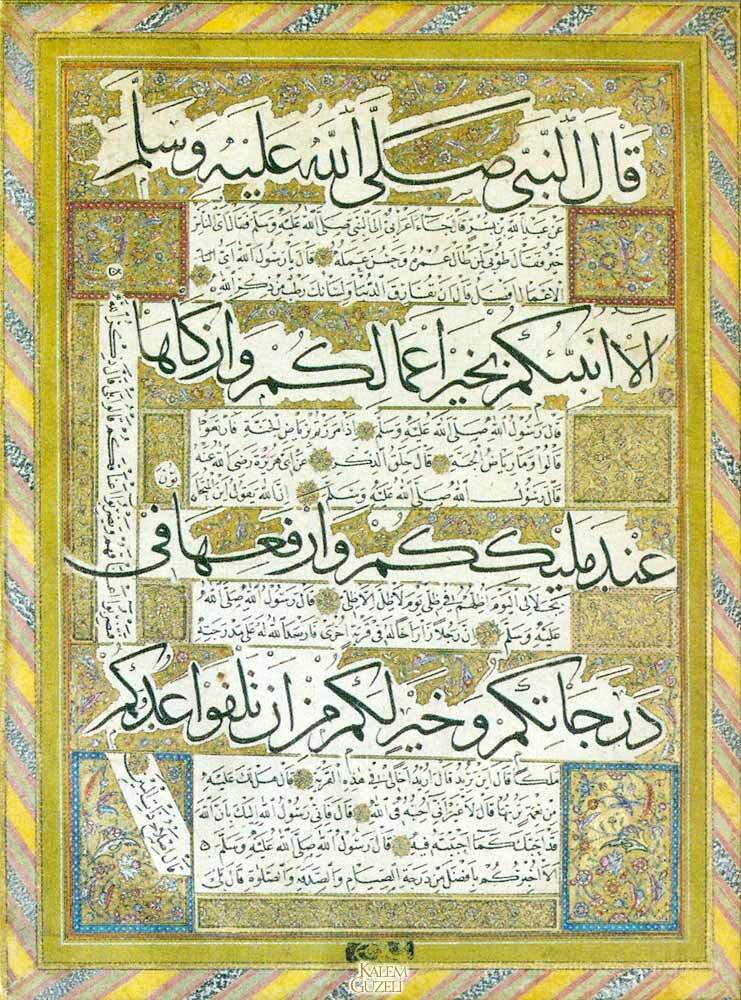 قَالَ النَّبِيُّ صَلَّى اللّٰهُ عَلَيْهِ وَسَلَّمَ
عن عبد الله بن بسر قال جاء اعرابي الى النبي صلى الله عليه وسلم فقال اي الناس
خير فقال طوبى لمن طال عمره وحسن عمله قال يا رسول الله اي
الاعمال افضل قال ان تفارق الدنيا ولسانك رطب من ذكر الله
اَلَا اُنَبِّئُكُمْ بِخَيْرِ اَعْمَالِكُمْ وَاَزْكَاهَا
قال رسول الله صلى الله عليه وسلم اذا مررتم برياض الجنة فارتعوا
قالوا وما رياض الجنة قال حلق الذكر عن ابي هريرة رضي الله عنه
قال رسول الله صلى الله عليه وسلم ان الله يقول اين المتحابون
عِنْدَ مَلِيكِكُمْ وَاَرْفَعِهَا فِي
بجلالي اليوم اظلهم في ظلي يوم لا ظل الا ظلي قال رسول الله صلى الله
عليه وسلم ان رجلا زار اخا له في قرية اخرى فارصد الله له على مدرجته
دَرَجَاتِكُمْ وَخَيْرٍ لَكُمْ مِنْ اَنْ تَلْقَوْا عَدُوَّكُمْ
ملكا قال اين تريد قال اريد اخا لي في هذه القرية قال هل لك عليه
من نعمة تربها قال لا غير اني احببته في الله قال فاني رسول الله اليك بان الله
قد احبك كما احببته فيه قال رسول الله صلى الله عليه وسلم
الا اخبركم بافضل من درجة الصيام والصدقة والصلوة قال بلى
KALEM
GÜZELİ